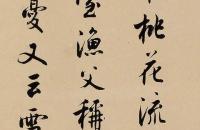 桃花流
漁父稱
憂又云